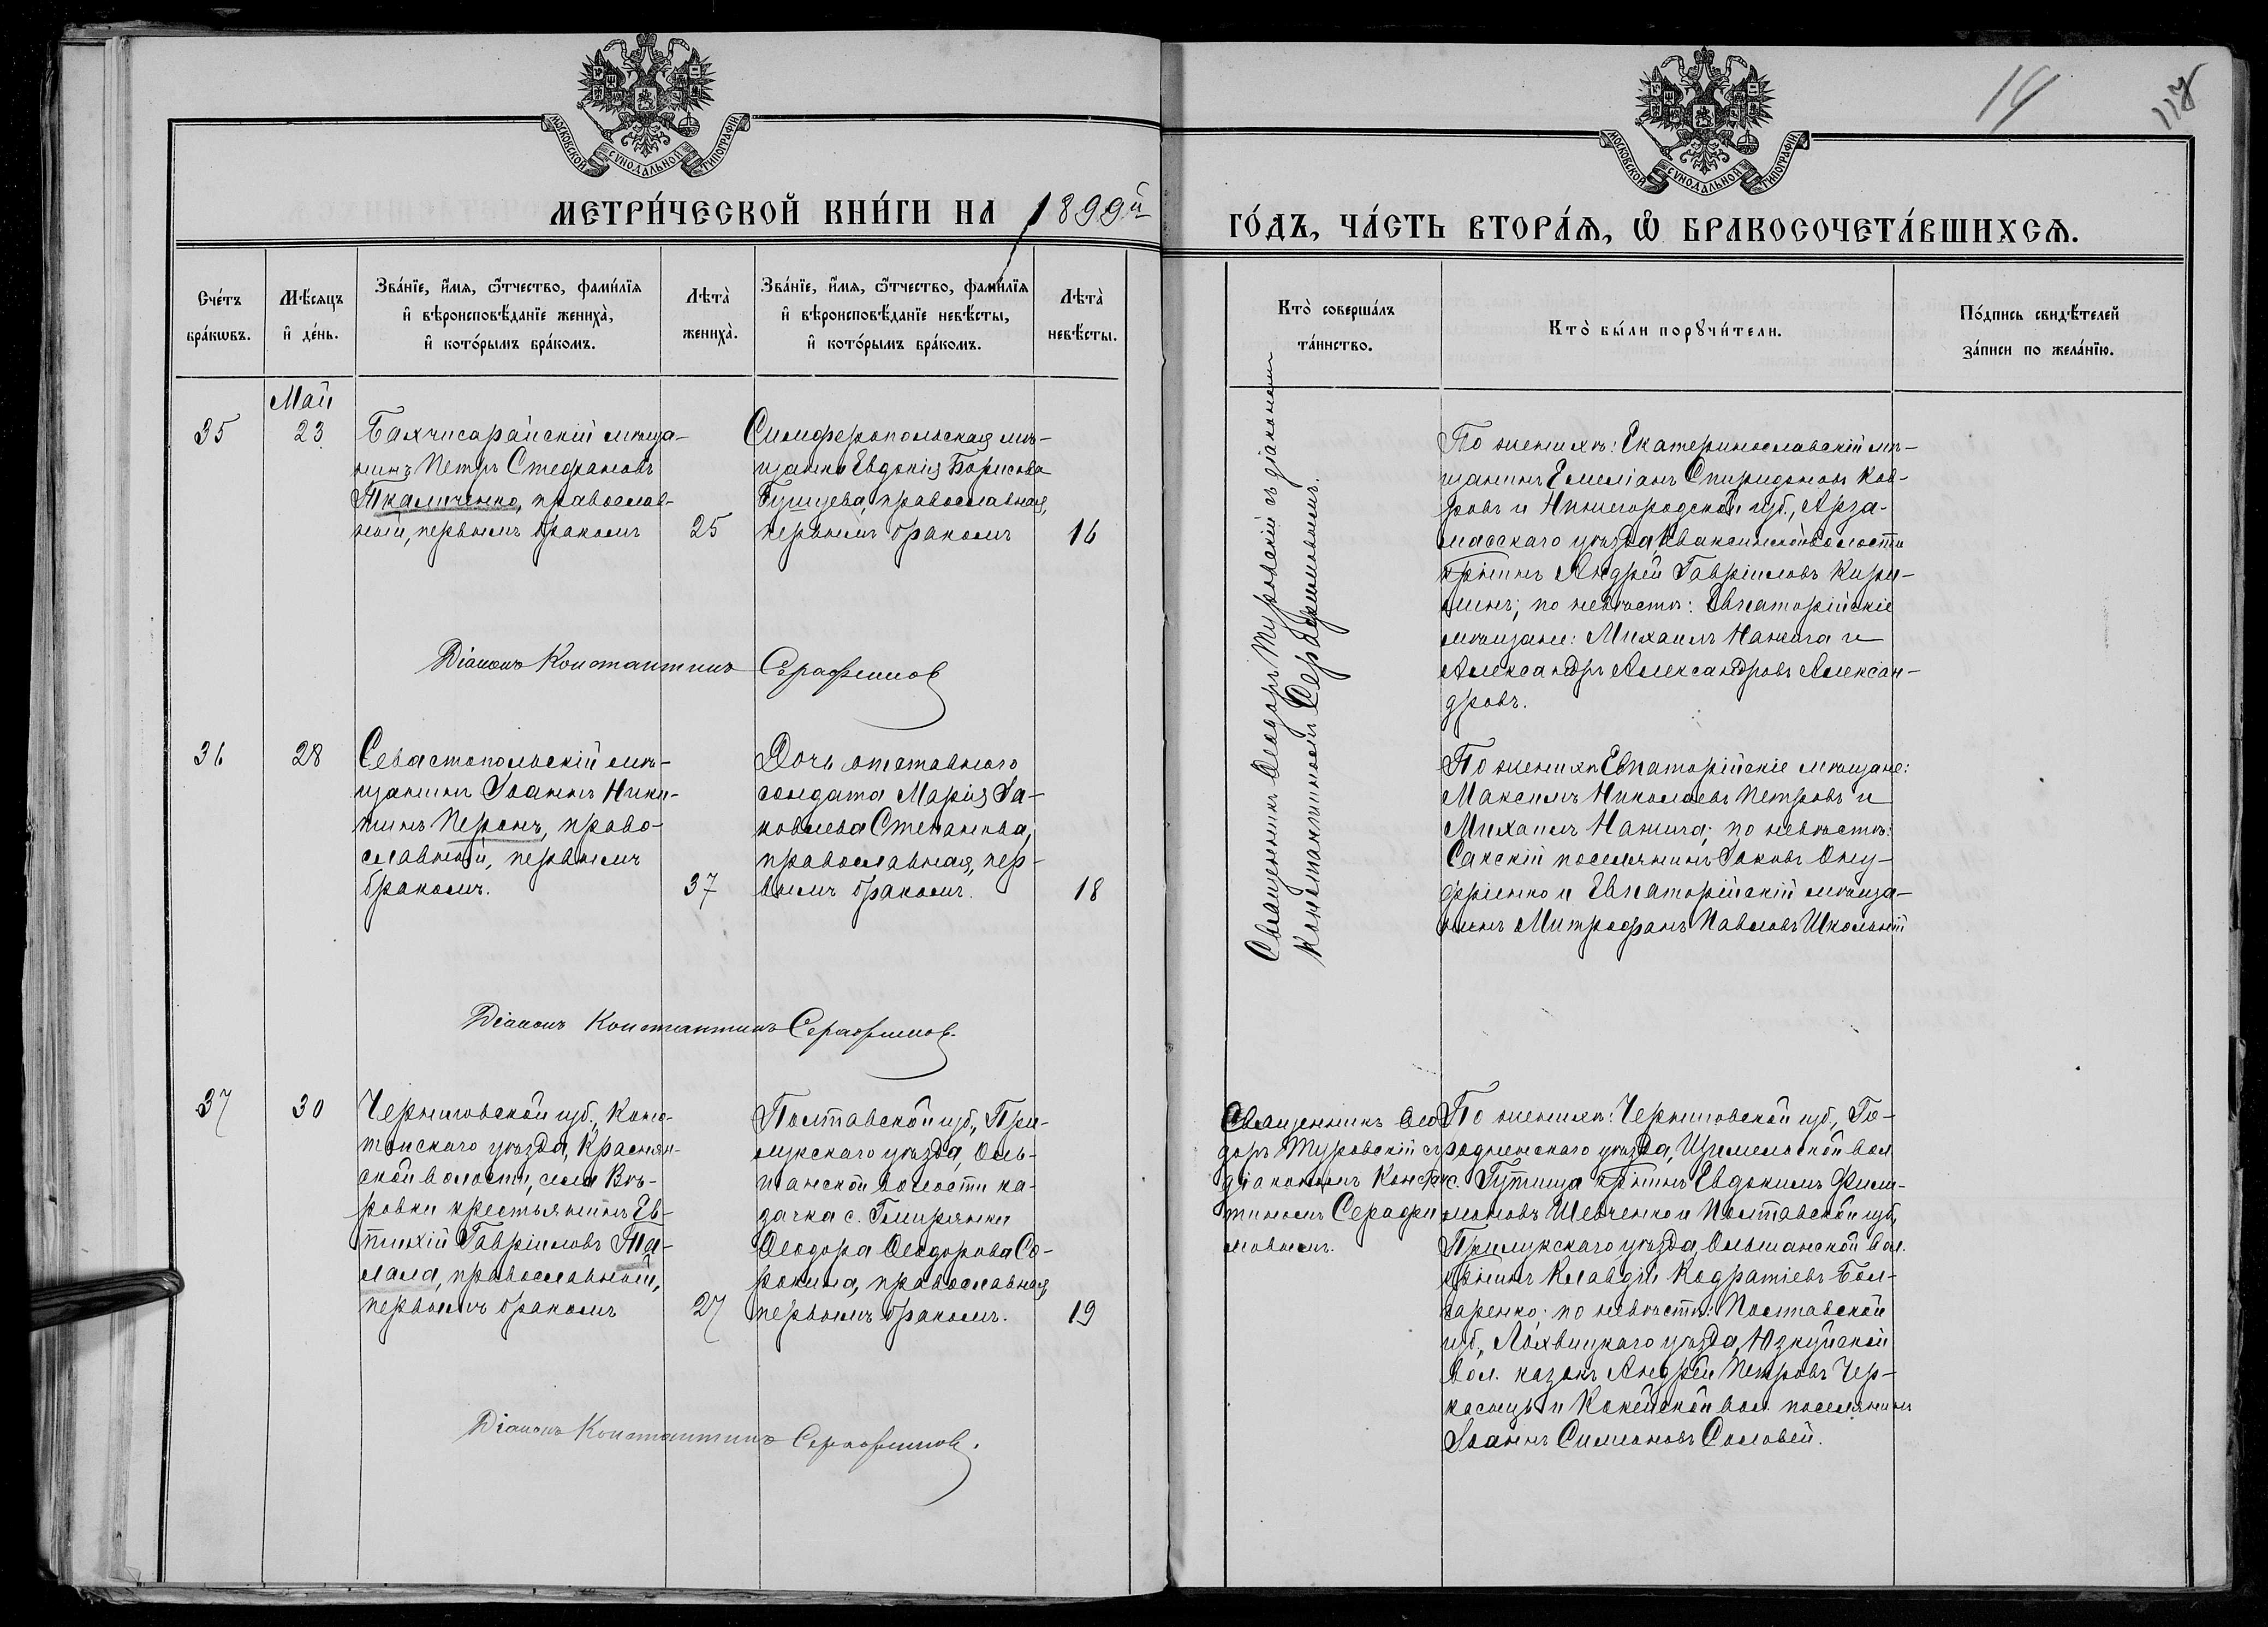 МОСКОВСКОЙ СѴНОДАЛЬНОЙ ТИПОГРАФІИ
МЕТРИ́ЧЕСКОЙ КНИ́ГИ НА 1899й
Сче́тъ бра́кѡвъ.
Мѣ́сяцъ и҆ де́нь.
Зва́нїе, и҆́мя, ѻ҆́тчество, фами́лїя
и҆ вѣроисповѣ́данїе жениха̀,
и҆ кото́рымъ бра́комъ.
Лѣта̀ жениха̀.
Зва́нїе, и҆́мя, ѻ҆́тчество, фами́лїя
и҆ вѣроисповѣ́данїе невѣ́сты,
и҆ кото́рымъ бра́комъ.
Лѣта̀ невѣ́сты.
Май
35
23
Бахчисарайскій мѣща-
нинъ Петръ Стефановъ
Ткаличенко, православ-
ный, первымъ бракомъ
25
Симферопольская мѣ-
щанка Евдокія Борисова
православная,
первымъ бракомъ
16
Діаконъ Константинъ Серафимов
36
28
Севастопольскій мѣ-
щанинъ Іоаннъ Ники-
тинъ Перонъ, право-
славный, первымъ
бракомъ.
37
Дочь отставного
солдата Марія Іа-
ковлева Степанова,
православная, пер-
вымъ бракомъ.
18
Діаконъ Константинъ Серафимов.
37
30
Черниговской губ., Коно-
топскаго уѣзда, Краснян-
ской волости, села Вы-
ровки крестьянинъ Ев-
тихій Гавріиловъ Та-
лала, православный,
первымъ бракомъ
27
Полтавской губ., При-
лукскаго уѣзда, Оль-
шанской волости ка-
зачка с. Гмирянки
Ѳеодора Ѳеодорова Со-
рокина, православная,
первымъ бракомъ.
19
Діаконъ Константинъ Серафимов.
14
МОСКОВСКОЙ СѴНОДАЛЬНОЙ ТИПОГРАФІИ
ГО́ДЪ, ЧА́СТЬ ВТОРА́Ѧ, Ѽ БРАКОСОЧЕТА́ВШИХСѦ.
Кто̀ соверша́лъ
та́инство.
Кто̀ бы́ли порꙋчи́тели.
По́дпись свидѣ́телей
за́писи по жела́нїю.
Священникъ Ѳеодоръ Туровскій съ діакономъ
Константиномъ Серафимовымъ.
По женихѣ: Екатеринославскій мѣ-
щанинъ Емеліанъ Спиридоновъ Ков-
ровъ и Нижегородской губ., Арза-
масскаго уѣзда, волости
кр҃нинъ Андрей Гавріиловъ Кири-
линъ; по невѣстѣ: Евпаторійскіе
мѣщане: Михаилъ Нанига и
Александръ Александровъ Алексан-
дровъ.
По женихѣ Евпаторійскіе мѣщане:
Максимъ Николаевъ Петровъ и
Михаилъ Нанига; по невѣстѣ:
Сакскій поселянинъ Іаковъ Ону-
фріенко и Евпаторійскій мѣща-
нинъ Митрофанъ Павловъ Школьній
Священникъ Ѳео-
доръ Туровскій съ
діакономъ Констан-
тиномъ Серафи-
мовымъ.
По женихѣ: Черниговской губ., Го-
родненскаго уѣзда, вол.
с. Гутища кр҃нинъ Евдокимъ Фили-
моновъ Шевченко и Полтавской губ.,
Прилукскаго уѣзда, Ольшанской вол.
кр҃нинъ Клавдій Кодратіевъ Бон-
даренко; по невѣстѣ: Полтавской
губ., Лохвицкаго уѣзда, вол. казакъ Андрей Петровъ Чер-
касецъ и вол. поселянинъ
Іоаннъ Симеоновъ Соловей.